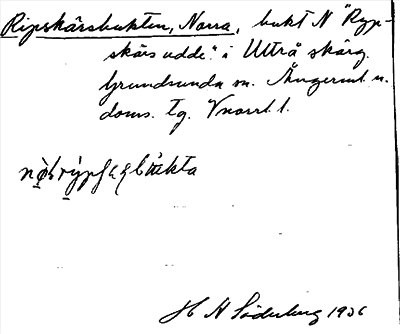 Ripskärsbukten, Norra, bukt N "Ryp-
skärsudde" i Ultrå skärg.
Grundsunda sn. Ångerml. n.
doms. Tg. Vnorrl. l.
H N Söderberg 1936